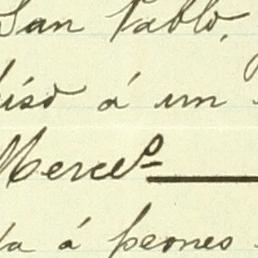 San Pablo,
iso á un
Merced
ta á peones